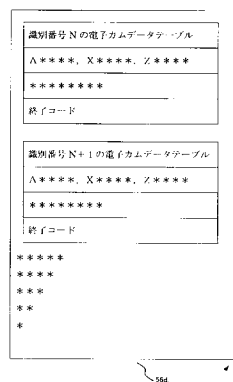 識別番号Nの電子カムデータテーブル
A****, X****, Z****
********
終了コード
識別番号N+1の電子カムデータテーブル
A****, X****, Z****
********
終了コード
*****
****
***
**
*
56d